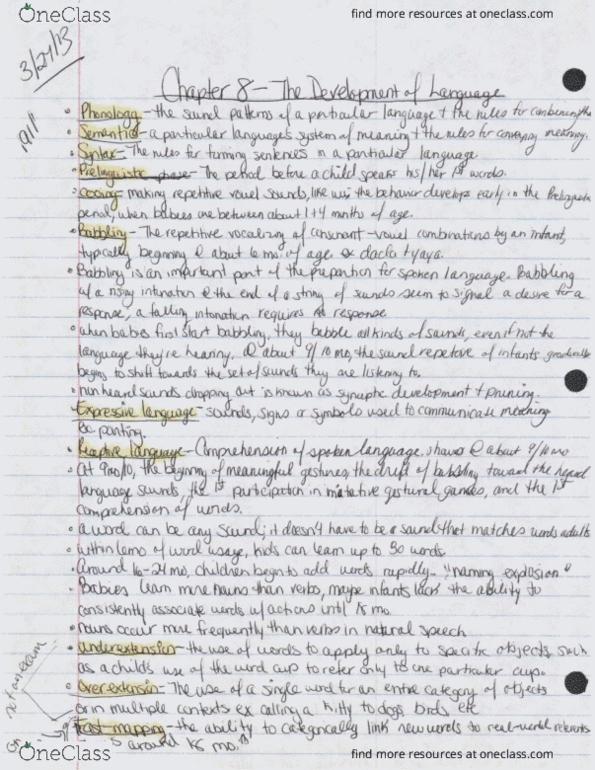 OneClass
find more resources at oneclass.com
3/27/13
Chapter 8 - The Development of Language
• Phonology - the sound patterns of a particular language + the rules for combining the
• Semantics - a particular languages system of meaning + the rules for conveying meaning.
• Syntax - The rules for forming sentences in a particular language.
• Prelinguistic phase - The period before a child speaks his/her 1st words.
• Cooing - making repetitive vowel sounds, like the behavior develops early in the Prelinguistic
period, when babies are between about 1 + 4 months of age.
• Babbling - The repetitive vocalizing of consonant-vowel combinations by an infant,
typically beginning @ about 6 mo. of age. dada + yaya.
• Babbling is an important part of the preparation for spoken language. Babbling
w/ a rising intonation @ the end of a string of sounds seem to signal a desire for a
response, a falling intonation requires no response
• when babies first start babbling, they babble all kinds of sounds, even if not the
language they're hearing. @ about 9/10 mo, the sound repetoire of infants gradually
begins to shift towards the set of sounds they are listening to.
• nun heard sounds dropping out is known as synaptic development + pruning.
• Expressive language - sounds, signs or symbols used to communicate meaning
Ex pointing.
• Receptive language - Comprehension of spoken language, shows @ about 9/10 mo
• At 9mo/10, the beginning of meaningful gestures, the drift of babbling toward the heard
language sounds, the 1st participation in imitative gestural games, and the 1st
comprehension of words.
• a word can be any sound; it doesn't have to be a sound that matches words adults
• within 6mo of word usage, kids can learn up to 30 words
• Around 16-24 mo, children begin to add words rapidly. "naming explosion"
• Babies learn more nouns than verbs, maybe infants lack the ability to
consistently associate words w/ actions until 18 mo.
• nouns occur more frequently than verbs in natural speech
• Underextension - the use of words to apply only to specific objects, such
as a child's use of the word cup to refer only to one particular cup.
• Overextension - The use of a single word for an entire category of objects
or in multiple contexts ex calling a kitty to dogs, birds etc
not on exam
• Fast mapping - the ability to categorically link new words to real-world referents
around 18 mo.
OneClass
find more resources at oneclass.com